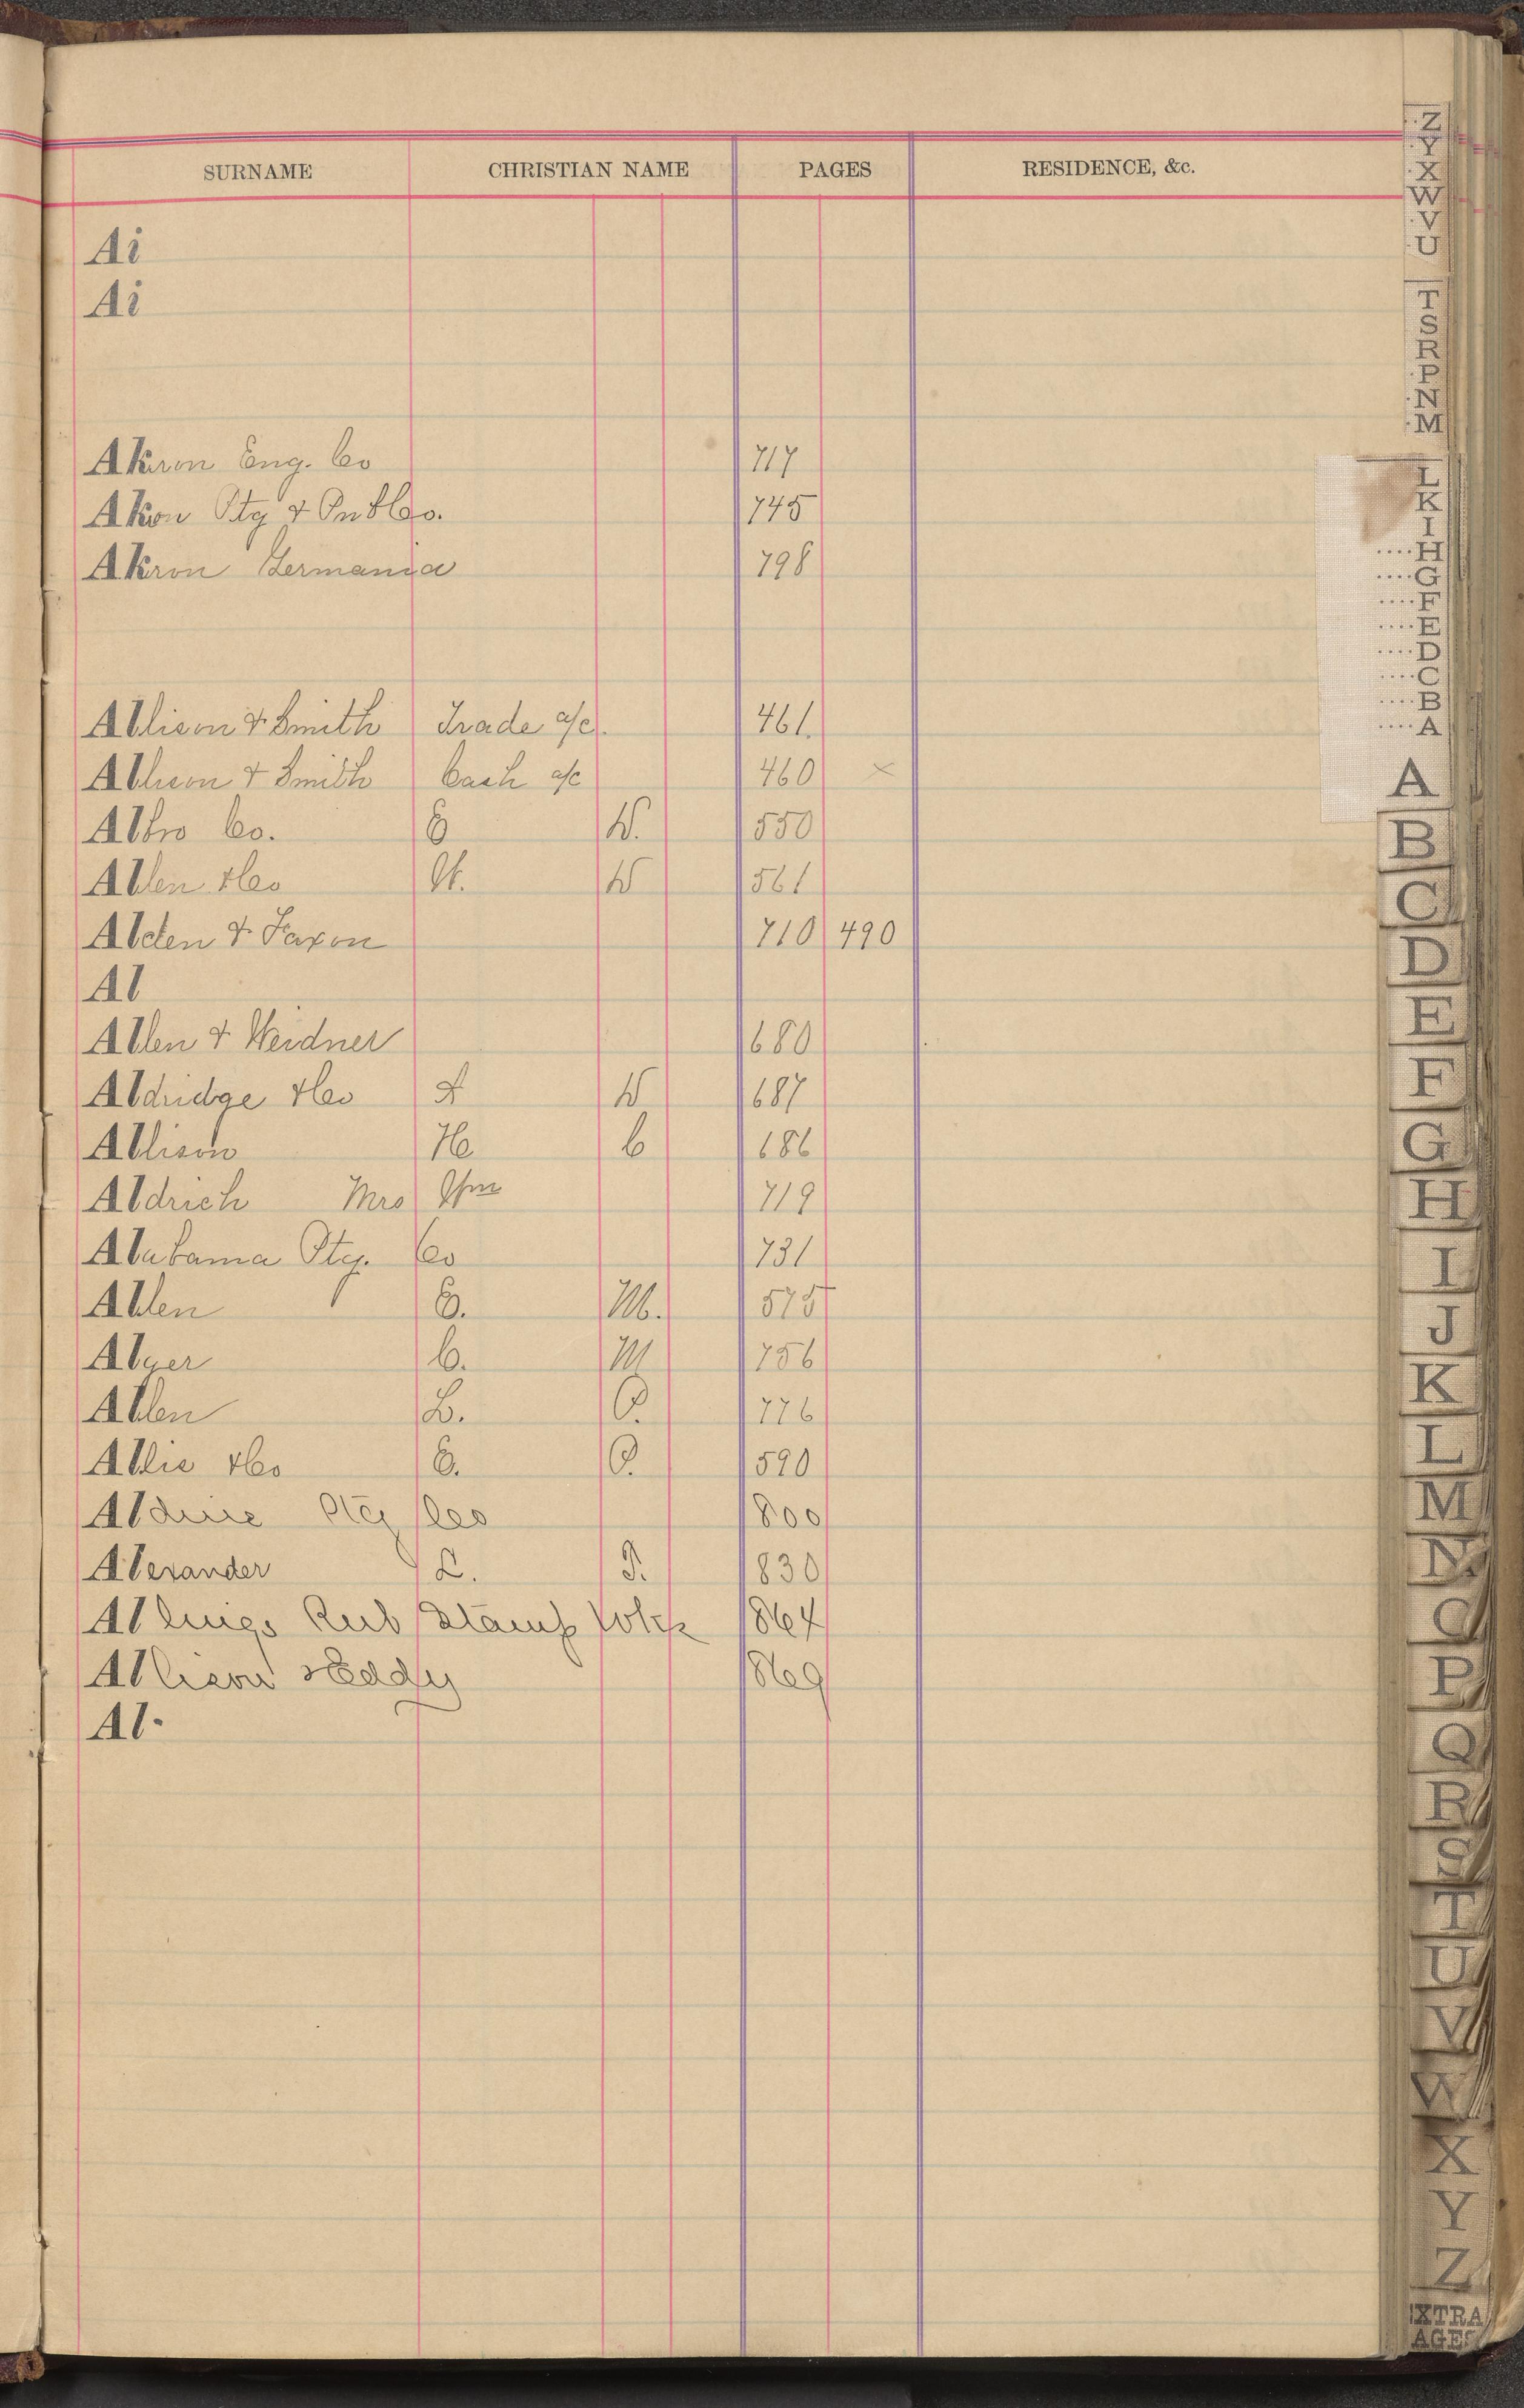 SURNAME CHRISTIAN NAME PAGES RESIDENCE, &c.
Ai
Ai
Akron Eng. Co 717
Akon Ptg & Pub Co. 745
Akron Germania 798
Allison & Smith Trade a/c. 461.
Allison & Smith Cash a/c 460 ×
Albro Co. E W. 550
Allen & Co H. W 561
Alden & Faxon 710 490
Al
Allen & Weidner 680
Aldridge & Co A W 687
Allison H C 686
Aldrich Mrs Wm 719
Alabama Ptg. Co 731
Allen E. M. 575
Alger C. M 756
Allen L. P. 776
Allis & Co E. P. 590
Aldine Ptg Co 800
Alexander L. T. 830
Allings Rub Stamp Wks 864
Allison & Eddy 869
Al-
Z
Y
X
W
V
U
T
S
R
P
N
M
L
K
I
....H
....G
....F
....E
....D
....C
....B
....A
A
B
C
D
E
F
G
H
I
J
K
L
M
N
O
P
Q
R
S
T
U
V
W
X
Y
Z
XTRA
AGES